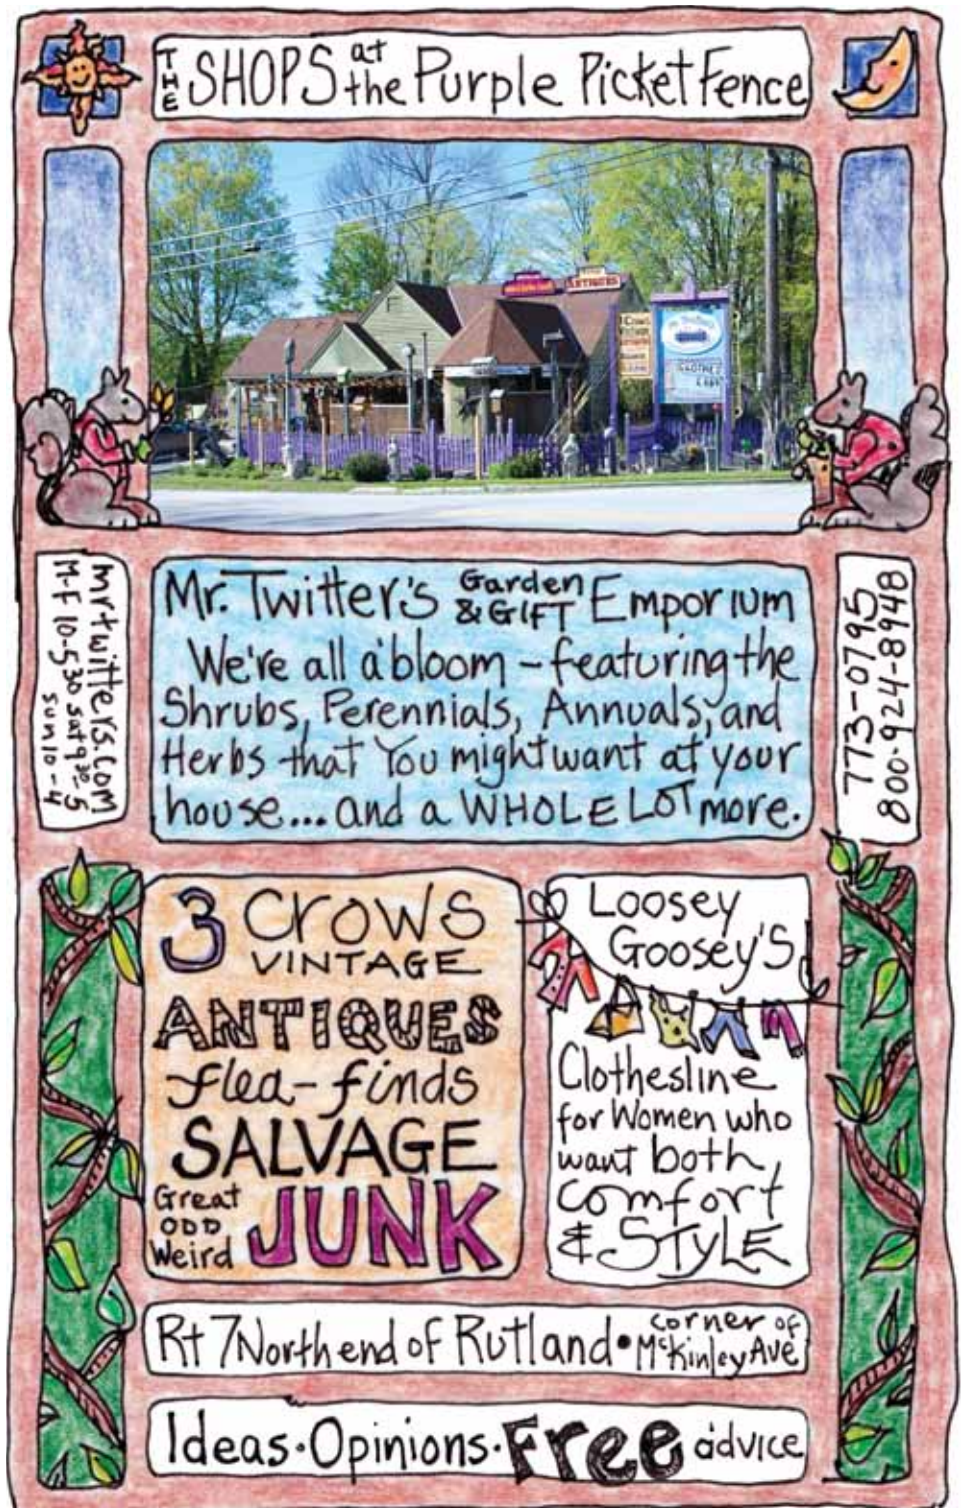 THE SHOPS at the Purple Picket Fence
ANTIQUES
mrtwitters.com
M-F 10-5:30 sat 9:30-5
sun 10-4
Mr. Twitter's Garden & GIFT Emporium
We're all a'bloom - featuring the
Shrubs, Perennials, Annuals, and
Herbs that You might want at your
house... and a WHOLE LOT more.
773-0795
800-924-8948
3 Crows
VINTAGE
ANTIQUES
flea-finds
SALVAGE
Great
ODD
Weird
JUNK
Loosey
Goosey's
Clothesline
for Women who
want both
comfort
& STYLE
Rt 7 North end of Rutland • corner of McKinley Ave
Ideas • Opinions • Free advice